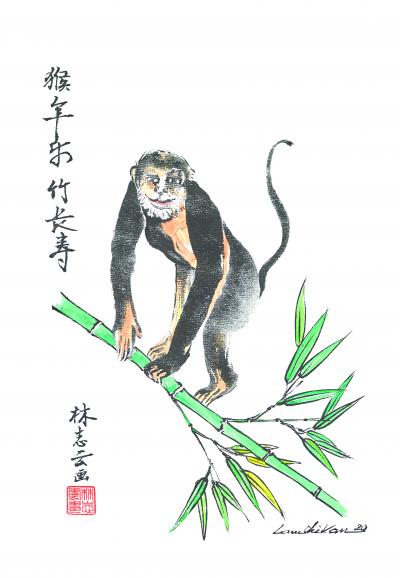 猴年乐竹长寿
林志云画
LamChiVan